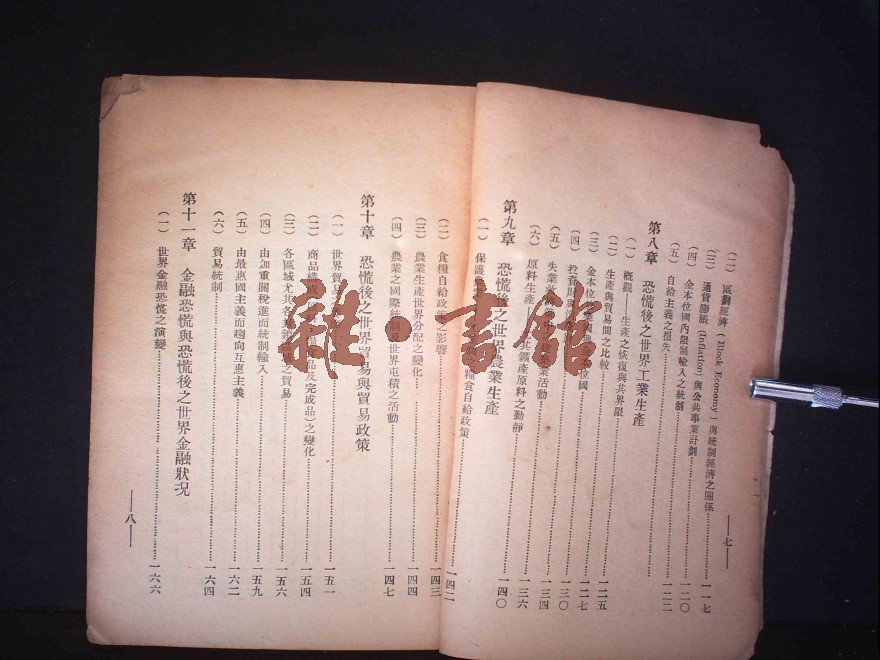 (二) 區劃經濟 (Block Economy) 與統制經濟之關係
(三) 通貨膨脹 (Inflation) 與公共事業計劃……一一七
(四) 金本位國內限制輸入之統制……一二〇
(五) 自給主義之損失……一二二
第八章 恐慌後之世界工業生產
(一) 概觀——生產之恢復與其界限
(二) 生產與貿易間之比較……一二五
(三) 金本位國……位國……一二七
(四) 投資財與……一三〇
(五) 失業……業活動……一三四
(六) 原料生產——尤其鑛產原料之動靜……一三六
第九章 恐慌後之世界農業生產……一四〇
(一) 保護……糧食自給政策
(二) 食糧自給政策之影響……一四二
(三) 農業生產世界分配之變化……一四三
(四) 農業之國際統制及世界屯積之活動……一四四
一四七
第十章 恐慌後之世界貿易與貿易政策
(一) 世界貿易……一五一
(二) 商品構成……品及完成品)之變化……一五四
(三) 各區域尤其各……之貿易……一五六
(四) 由加重關稅進而統制輸入……一五九
(五) 由最惠國主義而趨向互惠主義……一六二
(六) 貿易統制……一六四
第十一章 金融恐慌與恐慌後之世界金融狀況
(一) 世界金融恐慌之演變……一六六
——七——
——八——
雜·書館